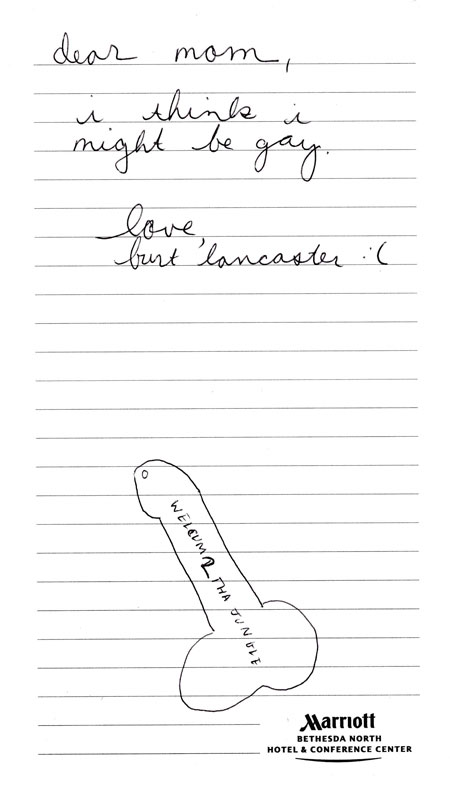 dear mom,
i think i
might be gay.
love,
burt lancaster :(
WELCUM 2 THA JUNGLE
Marriott
BETHESDA NORTH
HOTEL & CONFERENCE CENTER